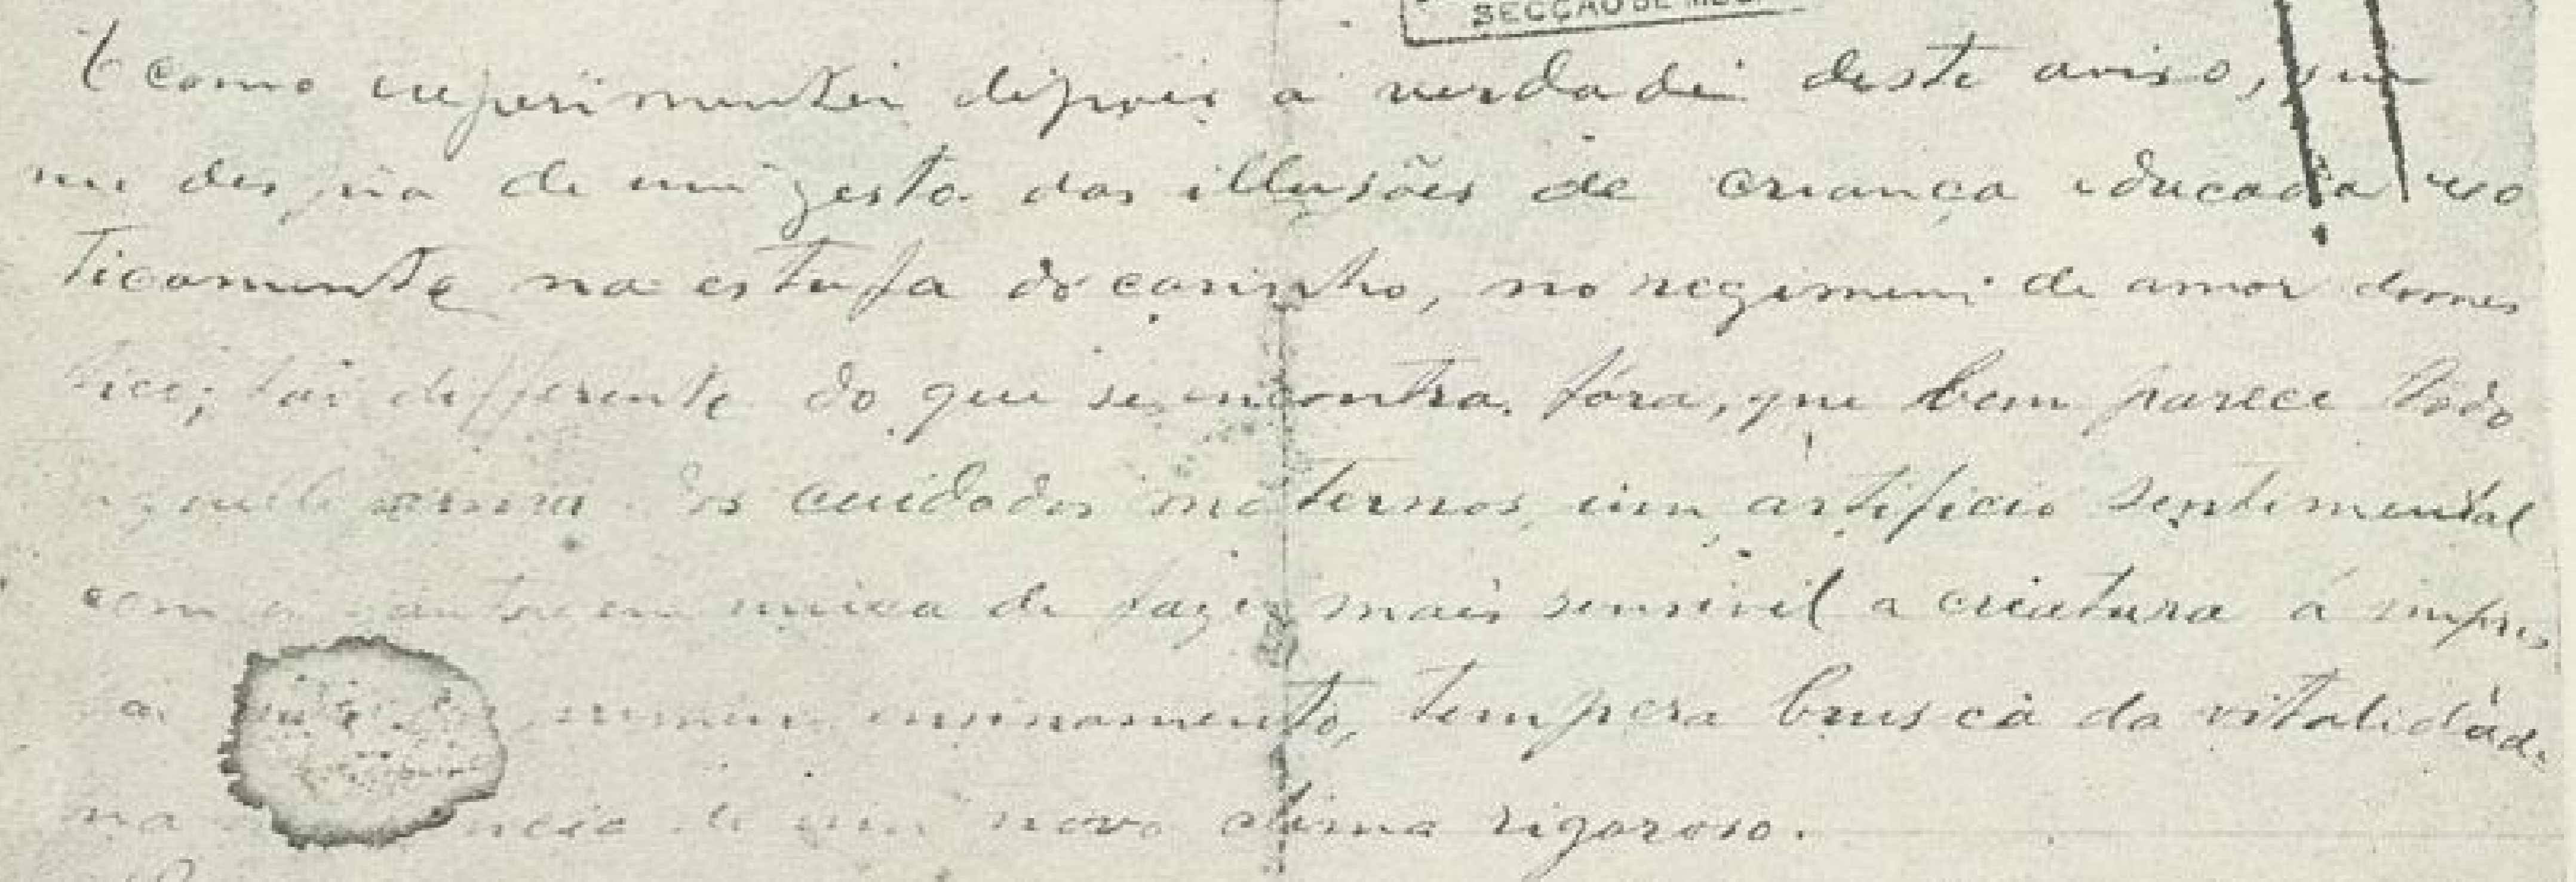 SECÇÃO DE
E como experimentei depois a verdade deste aviso, que
me despia de um gesto das illusões de criança educada exo
ticamente na estufa do carinho, no regimem de amor domes
tico; tão differente do que se encontra fóra, que bem parece todo
aquelle poema dos cuidados maternos um artificio sentimental
com a vantagem unica de fazer mais sensivel a creatura á impres
são primeiro ensinamento, tempera brusca da vitalidade
na de um novo clima rigoroso.